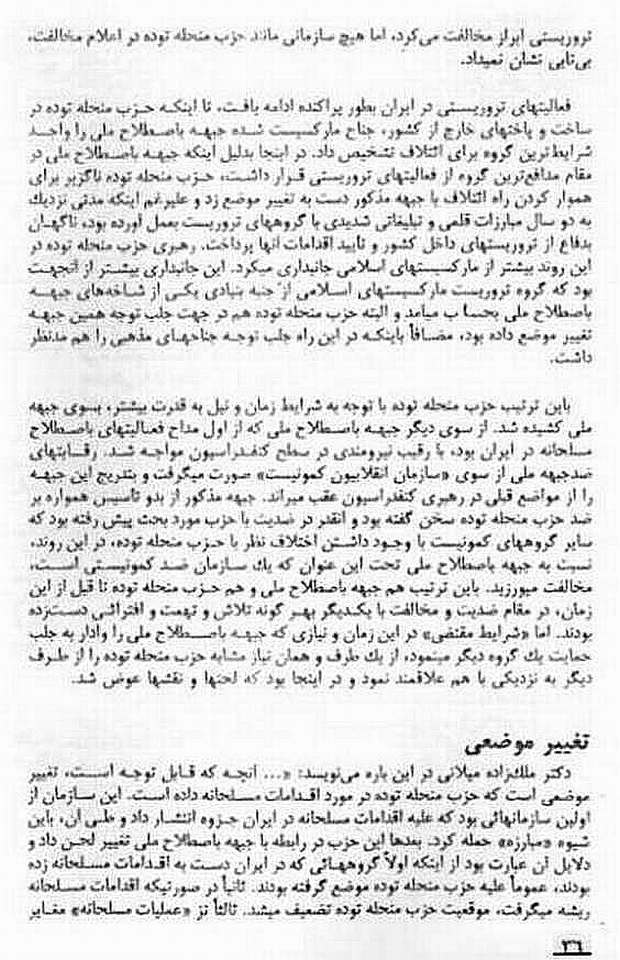 تروریستی ابراز مخالفت می‌کرد، اما هیچ سازمانی مانند حزب منحله توده در اعلام مخالفت،
بی‌تابی نشان نمیداد.
فعالیتهای تروریستی در ایران بطور پراکنده ادامه یافت، تا اینکه حزب منحله توده در
ساخت و پاختهای خارج از کشور، جناح مارکسیست شده جبهه باصطلاح ملی را واجد
شرایط‌ترین گروه برای ائتلاف تشخیص داد. در اینجا بدلیل اینکه جبهه باصطلاح ملی در
مقام مدافع‌ترین گروه از فعالیتهای تروریستی قرار داشت، حزب منحله توده ناگزیر برای
هموار کردن راه ائتلاف با جبهه مذکور دست به تغییر موضع زد و علیرغم اینکه مدتی نزدیك
به دو سال مبارزات قلمی و تبلیغاتی شدیدی با گروههای تروریست بعمل آورده بود، ناگهان
بدفاع از تروریستهای داخل کشور و تایید اقدامات آنها پرداخت. رهبری حزب منحله توده در
این روند بیشتر از مارکسیستهای اسلامی جانبداری میکرد. این جانبداری بیشتر از آنجهت
بود که گروه تروریست مارکسیستهای اسلامی از جنبه بنیادی یکی از شاخه‌های جبهه
باصطلاح ملی بحساب میآمد و البته حزب منحله توده هم در جهت جلب توجه همین جبهه
تغییر موضع داده بود، مضافاً باینکه در این راه جلب توجه جناحهای مذهبی را هم مدنظر
داشت.
باین ترتیب حزب منحله توده با توجه به شرایط زمان و نیل به قدرت بیشتر، بسوی جبهه
ملی کشیده شد. از سوی دیگر جبهه باصطلاح ملی که از اول مداح فعالیتهای باصطلاح
مسلحانه در ایران بود، با رقیب نیرومندی در سطح کنفدراسیون مواجه شد. رقابتهای
ضدجبهه ملی از سوی «سازمان انقلابیون کمونیست» صورت میگرفت و بتدریج این جبهه
را از مواضع قبلی در رهبری کنفدراسیون عقب میراند. جبهه مذکور از بدو تاسیس همواره بر
ضد حزب منحله توده سخن گفته بود و آنقدر در ضدیت با حزب مورد بحث پیش رفته بود که
سایر گروههای کمونیست با وجود داشتن اختلاف نظر با حزب منحله توده، در این روند،
نسبت به جبهه باصطلاح ملی تحت این عنوان که یك سازمان ضد کمونیستی است،
مخالفت میورزید. باین ترتیب هم جبهه باصطلاح ملی و هم حزب منحله توده تا قبل از این
زمان، در مقام ضدیت و مخالفت با یکدیگر بهر گونه تلاش و تهمت و افترائی دست‌زده
بودند. اما «شرایط مقتضی» در این زمان و نیازی که جبهه باصطلاح ملی را وادار به جلب
حمایت یك گروه دیگر مینمود، از یك طرف و همان نیاز مشابه حزب منحله توده را از طرف
دیگر به نزدیکی با هم علاقمند نمود و در اینجا بود که لحنها و نقشها عوض شد.
تغییر موضعی
دکتر ملك‌زاده میلانی در این باره می‌نویسد: «... آنچه که قابل توجه است، تغییر
موضعی است که حزب منحله توده در مورد اقدامات مسلحانه داده است. این سازمان از
اولین سازمانهائی بود که علیه اقدامات مسلحانه در ایران جزوه انتشار داد و طی آن، باین
شیوه «مبارزه» حمله کرد. بعدها این حزب در رابطه با جبهه باصطلاح ملی تغییر لحن داد و
دلایل آن عبارت بود از اینکه اولاً گروههائی که در ایران دست به اقدامات مسلحانه زده
بودند، عموماً علیه حزب منحله توده موضع گرفته بودند. ثانیاً در صورتیکه اقدامات مسلحانه
ریشه میگرفت، موقعیت حزب منحله توده تضعیف میشد. ثالثاً تز «عملیات مسلحانه» مغایر
۳۶